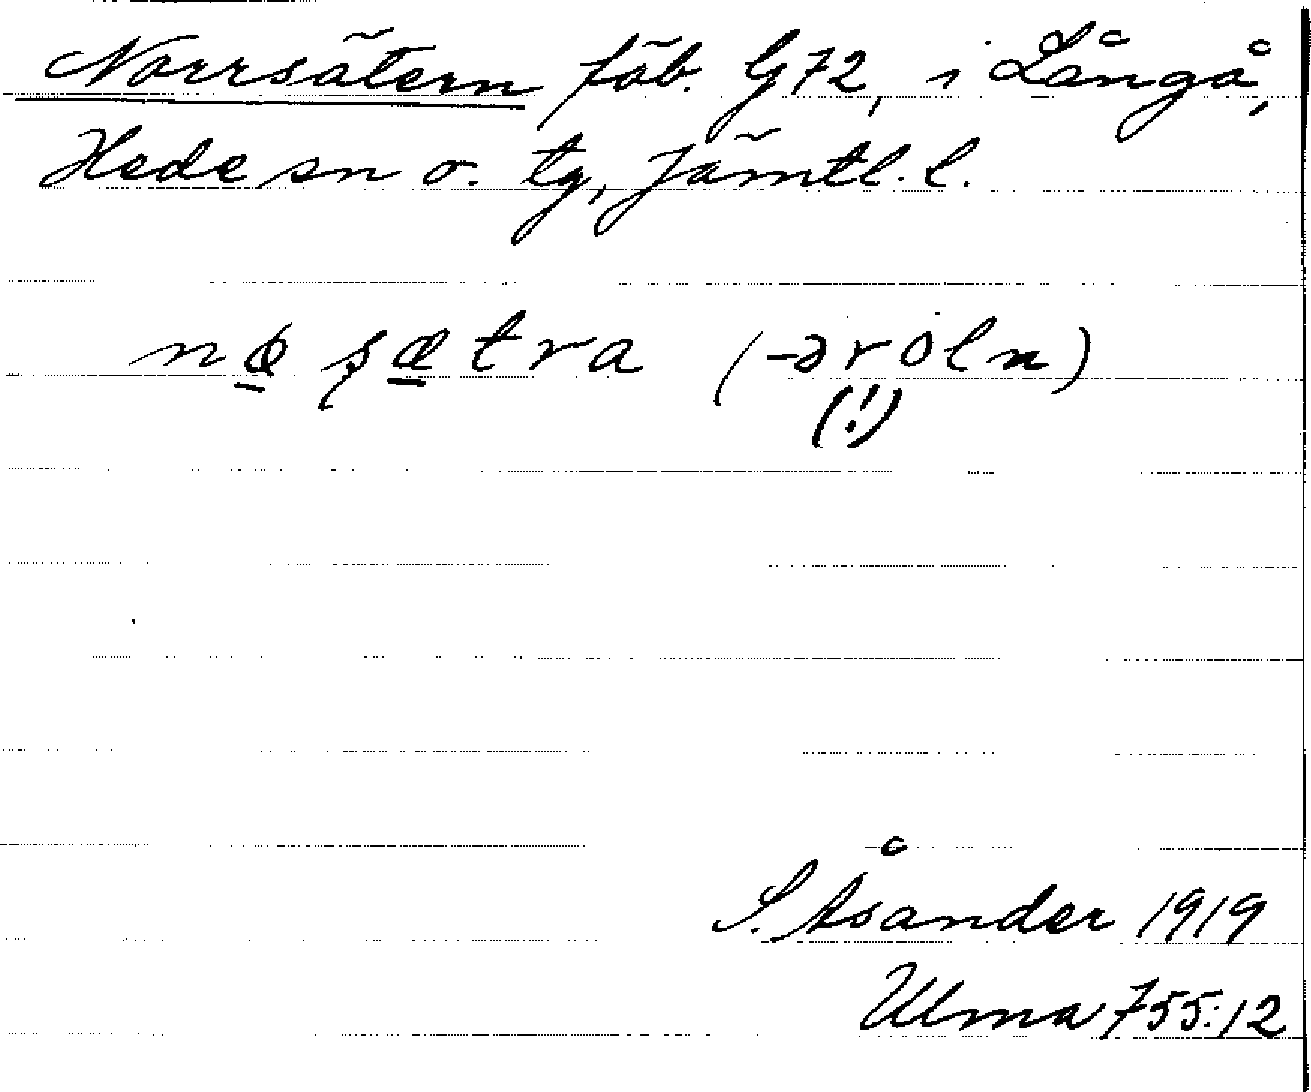 Norrsätern fäb. G72, i Långå,
Hede sn o. tg, Jämtl. l.
nœ̱ ʂæ̱tra (-əroln)
(!)
S. Åsander 1919
Ulma 755:12